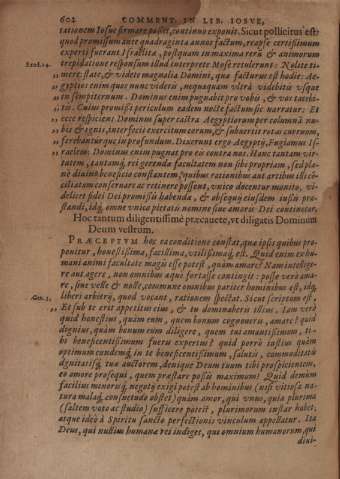 602 COMMENT. IN LIB. IOSVE,
tationem Iosue firmare posset, continuo exponit. Sicut pollicitus est:
quod promissum ante quadraginta annos factum, reapse certissimum
experti fuerant Israëlitæ, postquam in maxima rerū & animorum
Exod. 14. trepidatione responsum illud interprete Mose retulerunt: Nolite ti-
„ mere: state, & videte magnalia Domini, quæ facturus est hodie: Ae-
„ gyptios enim quos nunc videtis, nequaquam vltrà videbitis vsque
„ in sempiternum. Dominus enim pugnabit pro vobis, & vos tacebi-
„ tis. Cuius promissi periculum eadem nocte factum sic narratur: Et
„ ecce respiciens Dominus super castra Aegyptiorum per columnā nu-
„ bis & ignis, interfecit exercitum eorum, & subuertit rotas curruum,
„ ferebanturque in profundum. Dixerunt ergo Aegyptij, Fugiamus Is-
„ raëlem: Dominus enim pugnat pro eis contra nos. Hanc tantam vir-
tutem, tantamque rei gerendæ facultatem non sibi propriam, sed pla-
nè diuini beneficio constantem, quibus rationibus aut artibus illi cō-
ciliatam conseruare ac retinere possent, vnico docentur monito, vi-
delicet fidei Dei promissis habenda, & obsequij eiusdem iussis præ-
standi, idque omne vnica pietatis nomine siue amoris Dei continetur.
Hoc tantum diligentissimè præcauete, vt diligatis Dominum
Deum vestrum.
PRÆCEPTVM hoc ea conditione constat, qua ipsis quibus pro-
ponitur, honestissima, facillima, vtilissimaque est. Quid enim ex hu-
mani animi facultate magis esse potest, quàm amare? Nam intellige-
re aut agere, non omnibus æquè fortasse contingit: posse verò ama-
re, siue velle & nolle, commune omnibus pariter hominibus est, idque
Gen. 3. liberi arbitrij, quod vocant, rationem spectat. Sicut scriptum est,
„ Et sub te erit appetitus eius, & tu dominaberis illius. Iam verò
quid honestius, quàm eum, quem bonum cognoueris, amare? quid
dignius, quàm bonum eum diligere, quem tui amantissimum, ti-
bi beneficentissimum fueris expertus? quid porrò iustius quàm
optimum eundemque in te beneficentissimum, salutis, commoditatis
dignitatisque tuæ auctorem, denique Deum tuum tibi prospicientem,
eo amore prosequi, quem præstare possis maximum? Quid demum
facilius minorisque negotij exigi potest ab hominibus (nisi vitiosa na-
tura malaque consuetudo obstet) quàm amor, qui vnus, quia plurima
(saltem voto ac studio) sufficere potest, plurimorum instar habet;
atque ideò à Spiritu sancto perfectionis vinculum appellatur. Ita
Deus, qui nullius humanæ rei indiget, qui omnium humanorum, qui
diui-